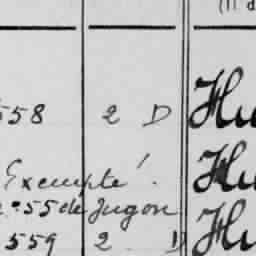 558 2 D Hu
Exempté. Hu
n° 55 de Jugon
559 2 D Hu